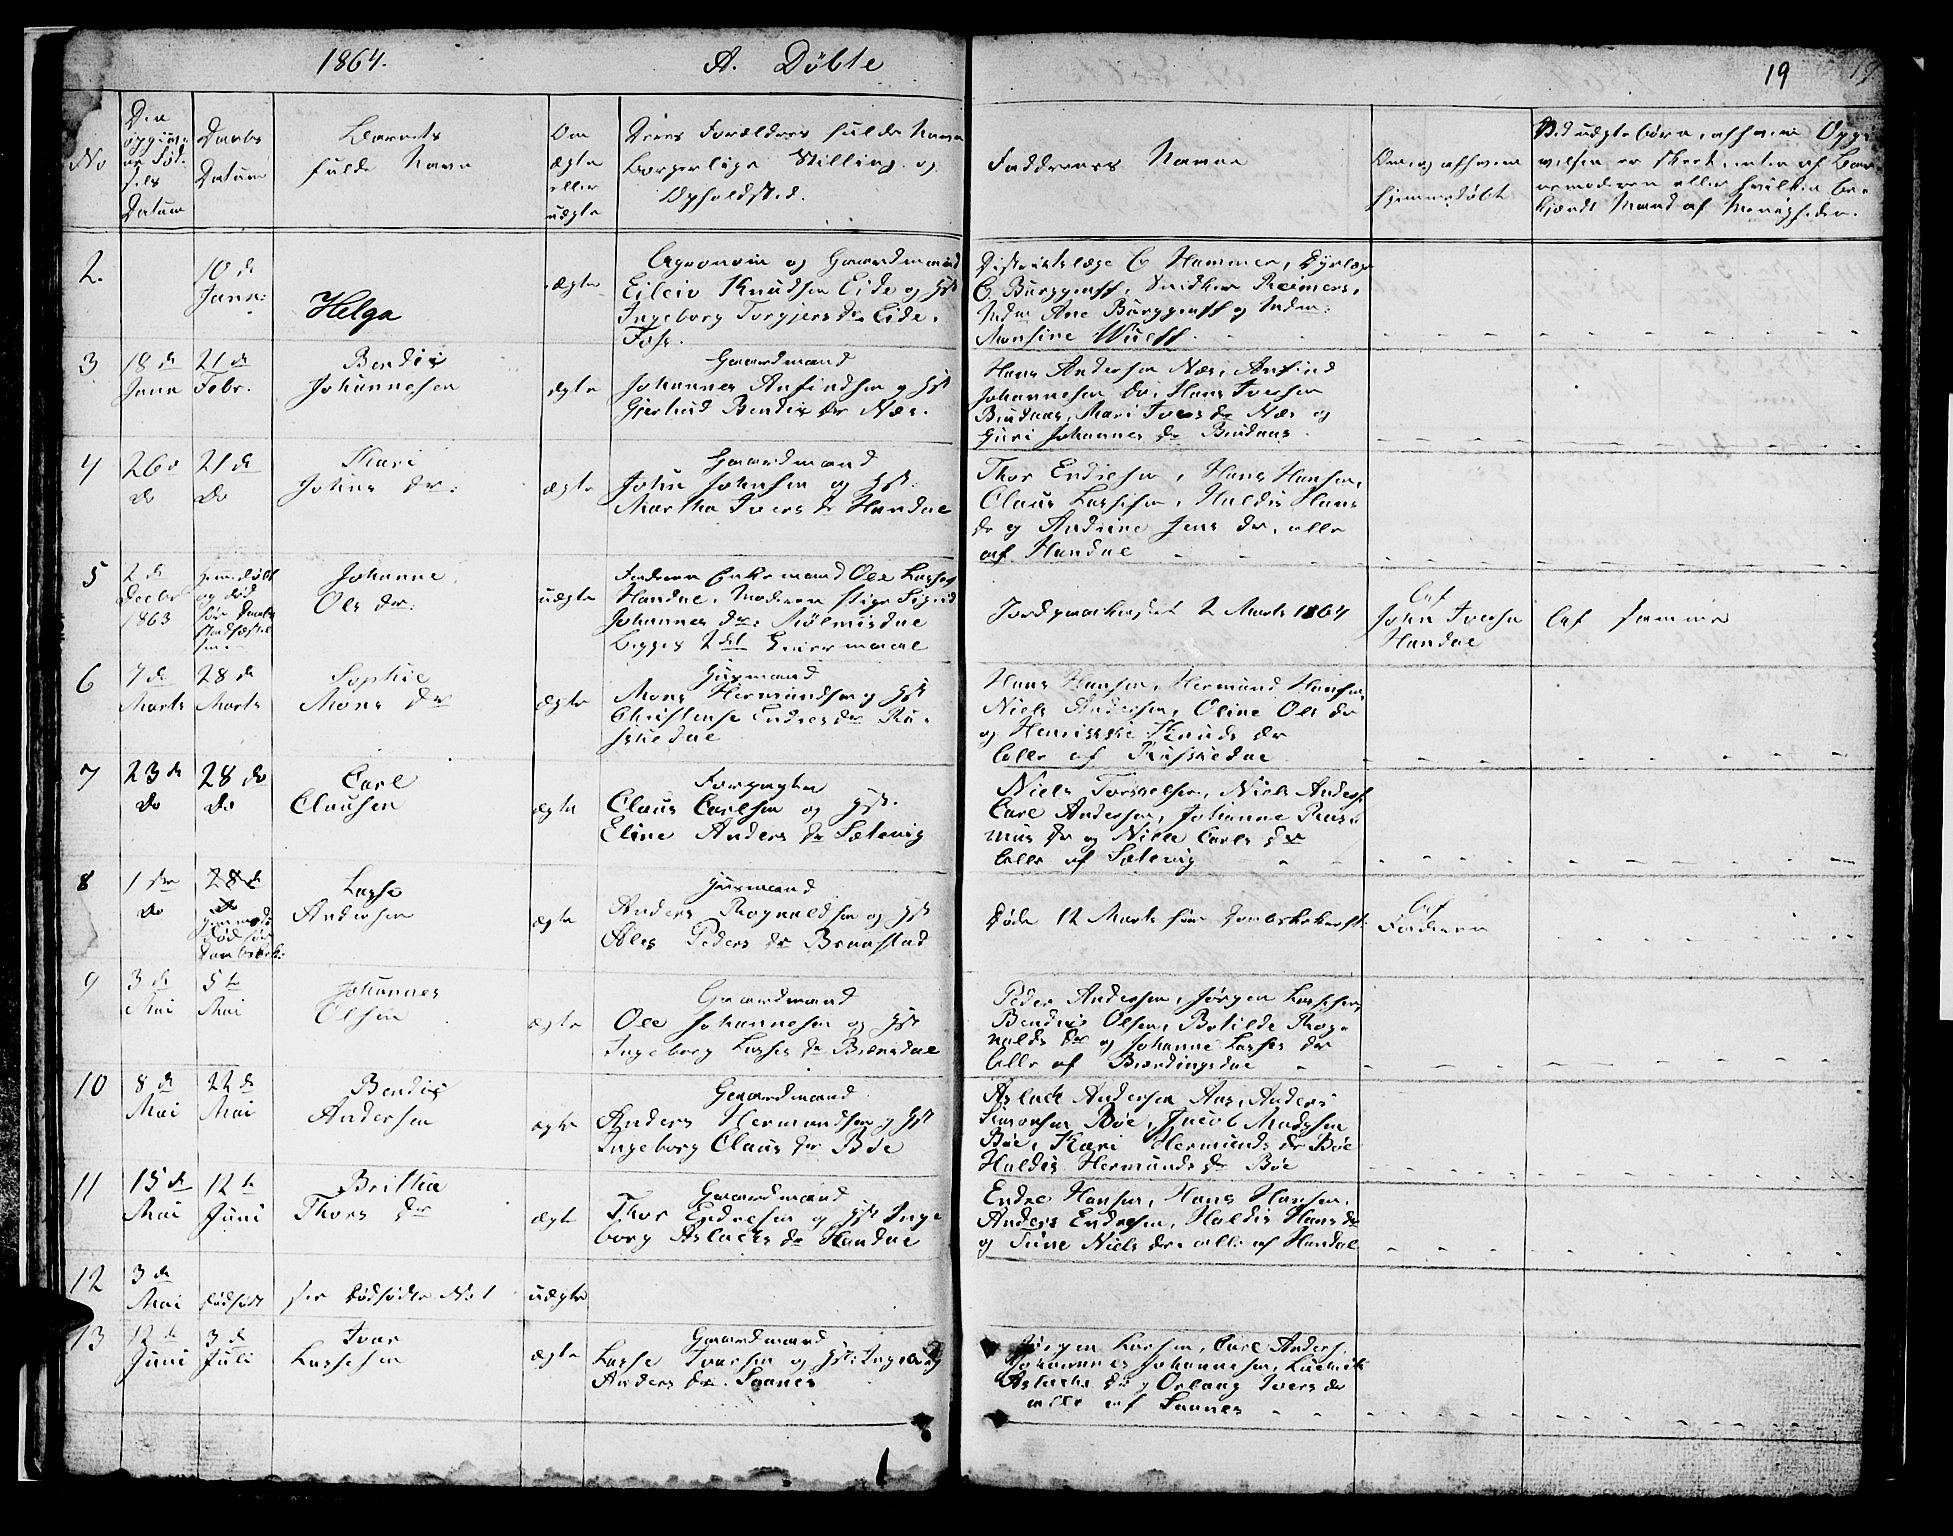 1864.
A. Döbte
19
19
No
Den
opgivne
Fød-
sels
Datum
Daabs
Datum
Barnets
fulde Navn
Om
ægte
eller
uægte
Deres Forældres fulde Navne
Borgerlige Stilling og
Opholdsted.
Faddernes Navne
Om og af hvem
hjemmedöbt
Ved uægte börn, af hvem Opgi-
velsen er skeet, enten af Bar-
nemoderen eller hvilken be-
kjendt Mand af Menigheden.
2.
10 de
Janr:
Helga
ægte
Agronom og Gaardmand
Eileiv Knudsen Eide og Hst
Ingeborg Torgjersdr Eide.
Fosr.
Distriktslæge C Hammer, Dyrlæge
C. Burggraff, Reimers,
Ane Burggraff og
Monsine Wulff.
3
18 de
Janr
21 de
Febr.
Bendix
Johannesen
ægte
Gaardmand
Johannes Anfindsen og Hst
Gjertrud Bendix dr Næs.
Hans Andersen Næs, Anfind
Johannesen do, Hans Iversen
Mari Ivers dr Næs og
Guri Johannes dr
4
26 d
do
21 de
do
Mari
Johns dr:
ægte
Gaardmand
John Johnsen og Hst.
Martha Ivers dr Handae
Thor Endresen, Hans Hansen,
Claus Lassesen, Haldis Hans
dr og Andrine Jens dr, alle
af Handae
5
2 de
Decbr
1863
hjemedøbt
og död
før Daabs
Stadfæstel
sen
Johanne
Ols dr:
uægte
Faderen Enkemand Ole Lasses
Handae, Moderen Pige Sigrid
Johannes dr: Mølmisdae
Begges 2det Leiermaal
Jordpaakastet 2 Marts 1864
Af
John Iversen
Handae
Af samme
6
7 de
Marts
28 de
Marts
Sophie
Mons dr
ægte
Huusmand
Mons Hermundsen og Hst
Christense Endresdr Rus-
skedae
Hans Hansen, Hermund Hansen
Niels Andersen, Oline Ols dr
og Henrikke Knuds dr
Alle af Russkedae
7
23 de
do
28 de
do
Carl
Clausen
ægte
Forpagter
Claus Carlsen og Hst.
Eline Anders dr Sætevig
Niels Torkelsen, Niels Anders
Carl Andersen, Johanne Rass-
mus dr og Nille Carls dr
Alle af Sætevig
8
1 ste
do
28 de
do
død før
Daabsbek:
Lasse
Andersen
ægte
Huusmand
Anders Rognaldsen og Hst
Ales Peders dr Braastad
Døde 12 Marts før Daabsbekræft:
Af
Faderen
9
3 de
Mai
5 te
Mai
Johannes
Olsen
ægte
Gaardmand
Ole Johannesen og Hst
Ingeborg Lasses dr Brændae
Peder Andersen, Jørgen Lassesen,
Bendix Olsen, Botilde Rog-
nalds dr og Johanne Lasses dr
Alle af Brædingsdae
10
8 de
Mai
22 de
Mai
Bendix
Andersen
ægte
Gaardmand
Anders Hermundsen og Hst
Ingeborg Claus dr Böe
Aslack Andersen Aas, Anders
Simonsen Böe, Jacob Madssen
Böe, Kari Hermunds dr Böe
Haldis Hermunds dr Böe
11
15 de
Mai
12 te
Juni
Britha
Thors dr
ægte
Gaardmand
Thor Endresen og Hst Inge
borg Aslacks dr Handae
Endre Hansen, Hans Hansen.
Anders Endresen, Haldis Hans dr
og Tine Niels dr. alle af Handae
12
3 de
Mai
dödfödt
see Dödfödte No 1
uægte
13
12 de
Juni
3 de
Juli
Ivar
Lassesen
ægte
Gaardmand
Lasse Ivarsen og Hst: Ingeborg
Anders dr. Saanes
Jørgen Larsen, Carl Anders.
Johannes Johannesen,
Aslacks dr, Orlaug Ivers dr
alle af Saanes